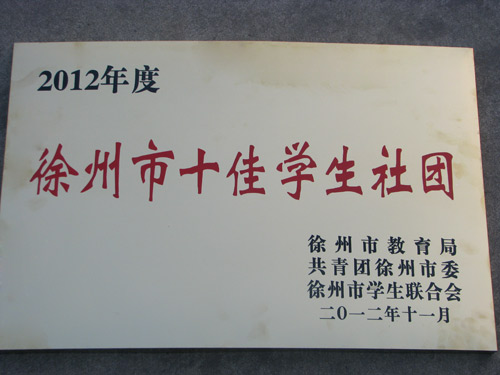 2012年度
徐州市十佳学生社团
徐州市教育局
共青团徐州市委
徐州市学生联合会
二〇一二年十一月